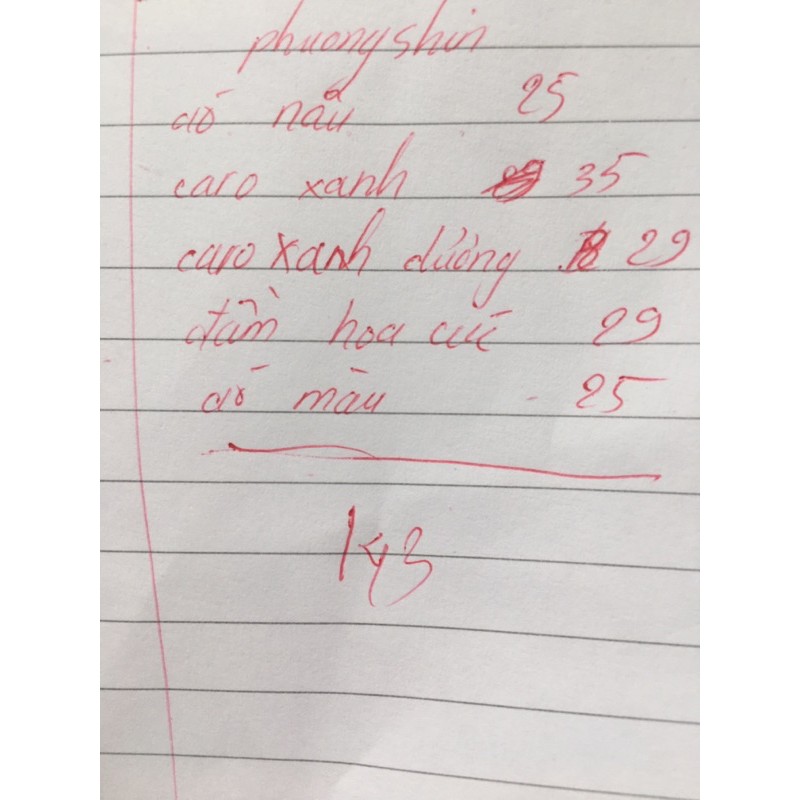 phuongshin
đỏ nâu 25
caro xanh 35
caro xanh dương 29
đầm hoa cúc 29
đỏ màu 25
143